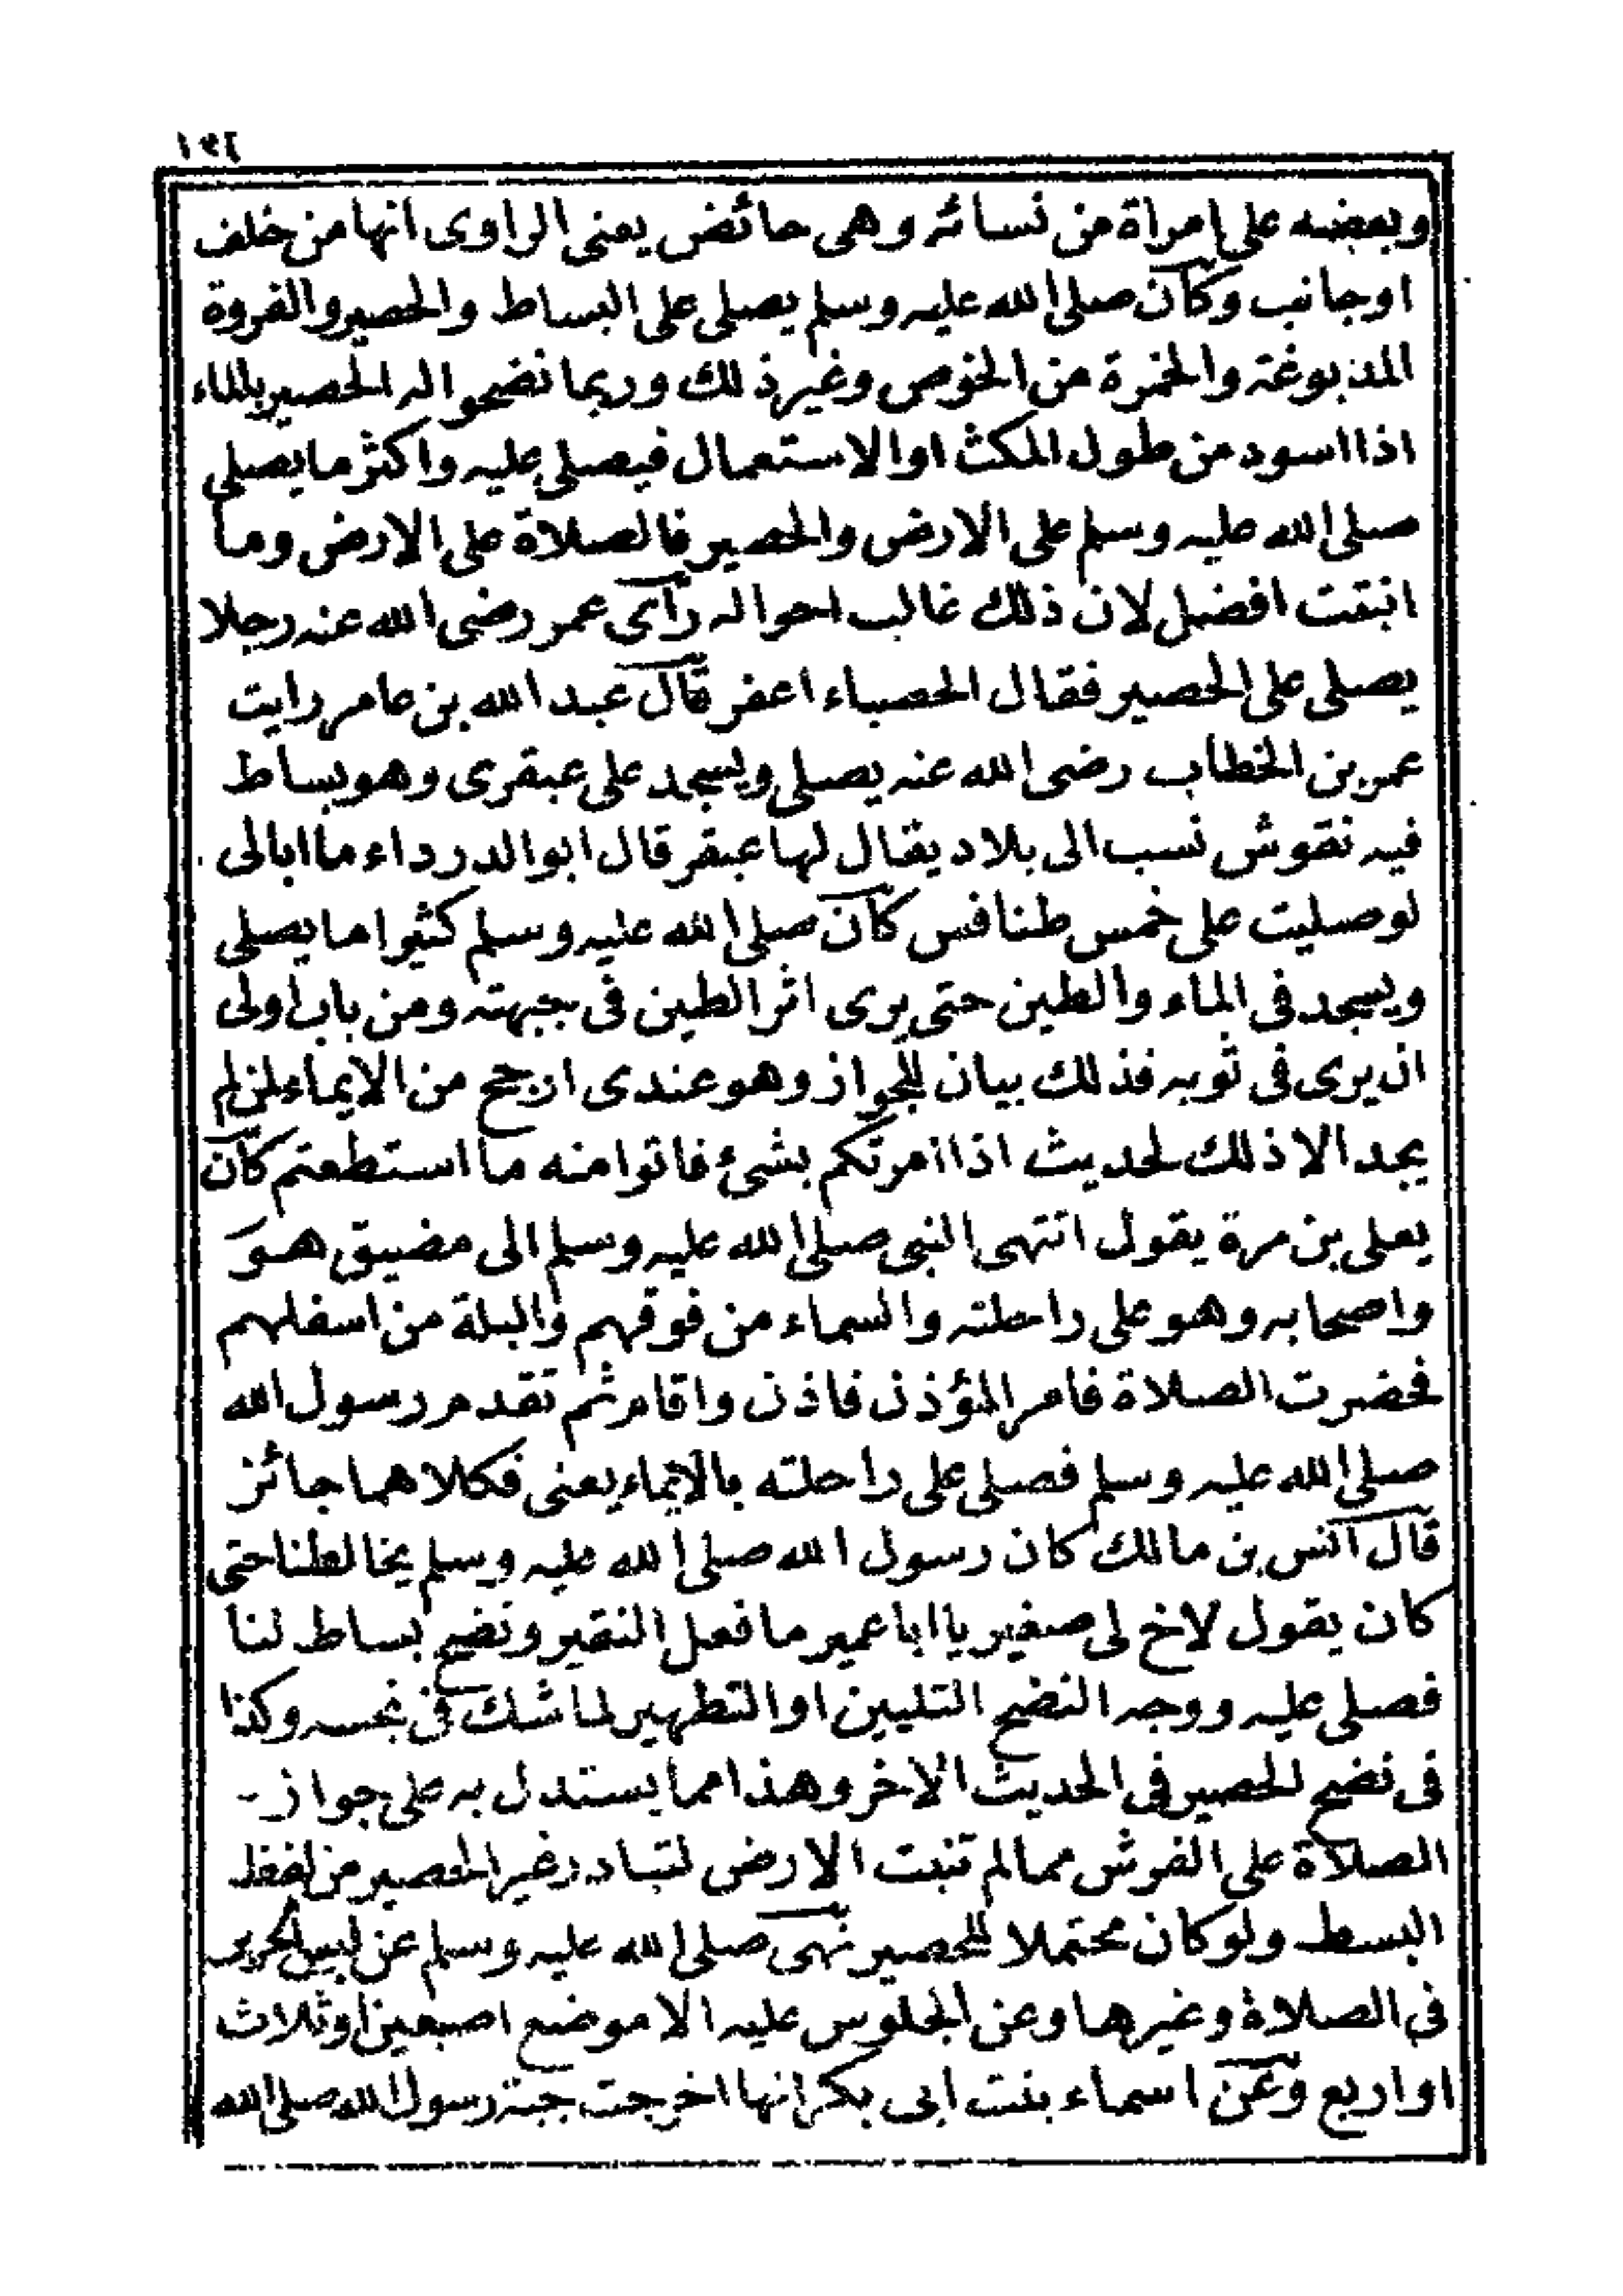 ١٩٤
وبعضه على امراة من نسائه وهى حائض يعنى الراوى انها من خلف
او جانب وكان صلى الله عليه وسلم يصلى على البساط والحصير والفروة
المدبوغة والخمرة من الخوص وغير ذلك وربما نضحوا له الحصير بالماء
اذا اسود من طول المكث او الاستعمال فيصلى عليه واكثر ما يصلى
صلى الله عليه وسلم على الارض والحصير فالصلاة على الارض وما
انبتت افضل لان ذلك غالب احواله رآى عمر رضى الله عنه رجلا
يصلى على الحصير فقال الحصباء اعفر قال عبد الله بن عامر رايت
عمر بن الخطاب رضى الله عنه يصلى ويسجد على عبقرى وهو بساط
فيه نقوش نسب الى بلاد يقال لها عبقر قال ابو الدرداء ما ابالى
لو صليت على خمس طنافس كان صلى الله عليه وسلم كثيرا ما يصلى
ويسجد فى الماء والطين حتى يرى اثر الطين فى جبهته ومن باب اولى
ان يرى فى ثوبه فذلك بيان للجواز وهو عندى ارجح من الايماء لمن لم
يجد الا ذلك لحديث اذا امرتكم بشئ فاتوا منه ما استطعتم كان
يعلى بن مرة يقول انتهى النبى صلى الله عليه وسلم الى مضيق هو
واصحابه وهو على راحلته والسماء من فوقهم والبلة من اسفلهم
فحضرت الصلاة فامر المؤذن فاذن واقام ثم تقدم رسول الله
صلى الله عليه وسلم فصلى على راحلته بالايماء يعنى فكلاهما جائز
قال انس بن مالك كان رسول الله صلى الله عليه وسلم يخالطنا حتى
كان يقول لاخ لى صغير يا ابا عمير ما فعل النقير ونضح بساط لنا
فصلى عليه ووجه النضح التليين او التطهير لما شك فى نجسه وكذا
فى نضح الحصير فى الحديث الاخر وهذا مما يستدل به على جواز
الصلاة على الفرش مما لم تنبت الارض لتبادر غير الحصير من لفظ
البسط ولو كان محتملا للحصير نهى صلى الله عليه وسلم عن لبس الحرير
فى الصلاة وغيرها وعن الجلوس عليه الا موضع اصبعين او ثلاث
او اربع وعن اسماء بنت ابى بكر انها اخرجت جبة رسول الله صلى الله